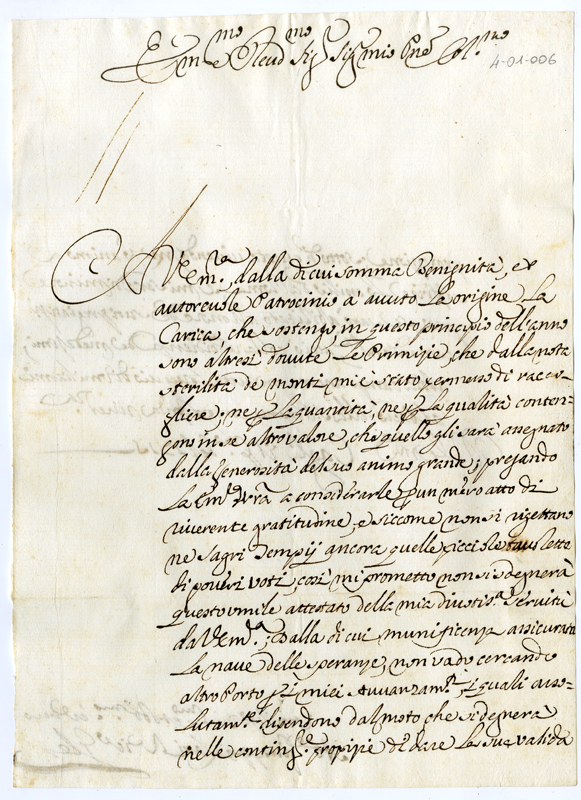 Em.mo e Reud.mo Sig.r Sig.r mio P.ne Col.mo
4-01-006
A V. Em.za, dalla di cui somma Benignità, et
autoreuole Patrocinio à auuto la origine La
Carica, che sostengo in questo principio dell'anno
sono altresì douute Le Primizie, che dalla nota
sterilità de monti mi è stato permesso di racco-
gliere; ne p la quantità, ne p la qualità conten-
gono in se altro valore, che quello gli sarà assegnato
dalla Generosità del suo animo grande; pregando
La Em.za Vr̃a a considerarle p un mero atto di
riuerente gratitudine, e siccome non si rigettano
ne Sagri Tempij ancora quelle picciole tauolette
di poueri voti, così mi prometto non si sdegnerà
questo umile attestato della mia diuotis.a seruitù
da V. Em.za, Dalla di cui munificenza assicurata
La naue delle speranze, non vado cercando
altro Porto p i miei Auuanzam.ti, i quali asso-
lutam.te dipendono dal moto che si degnerà
nelle conting.ze propizie di dare La sua valida